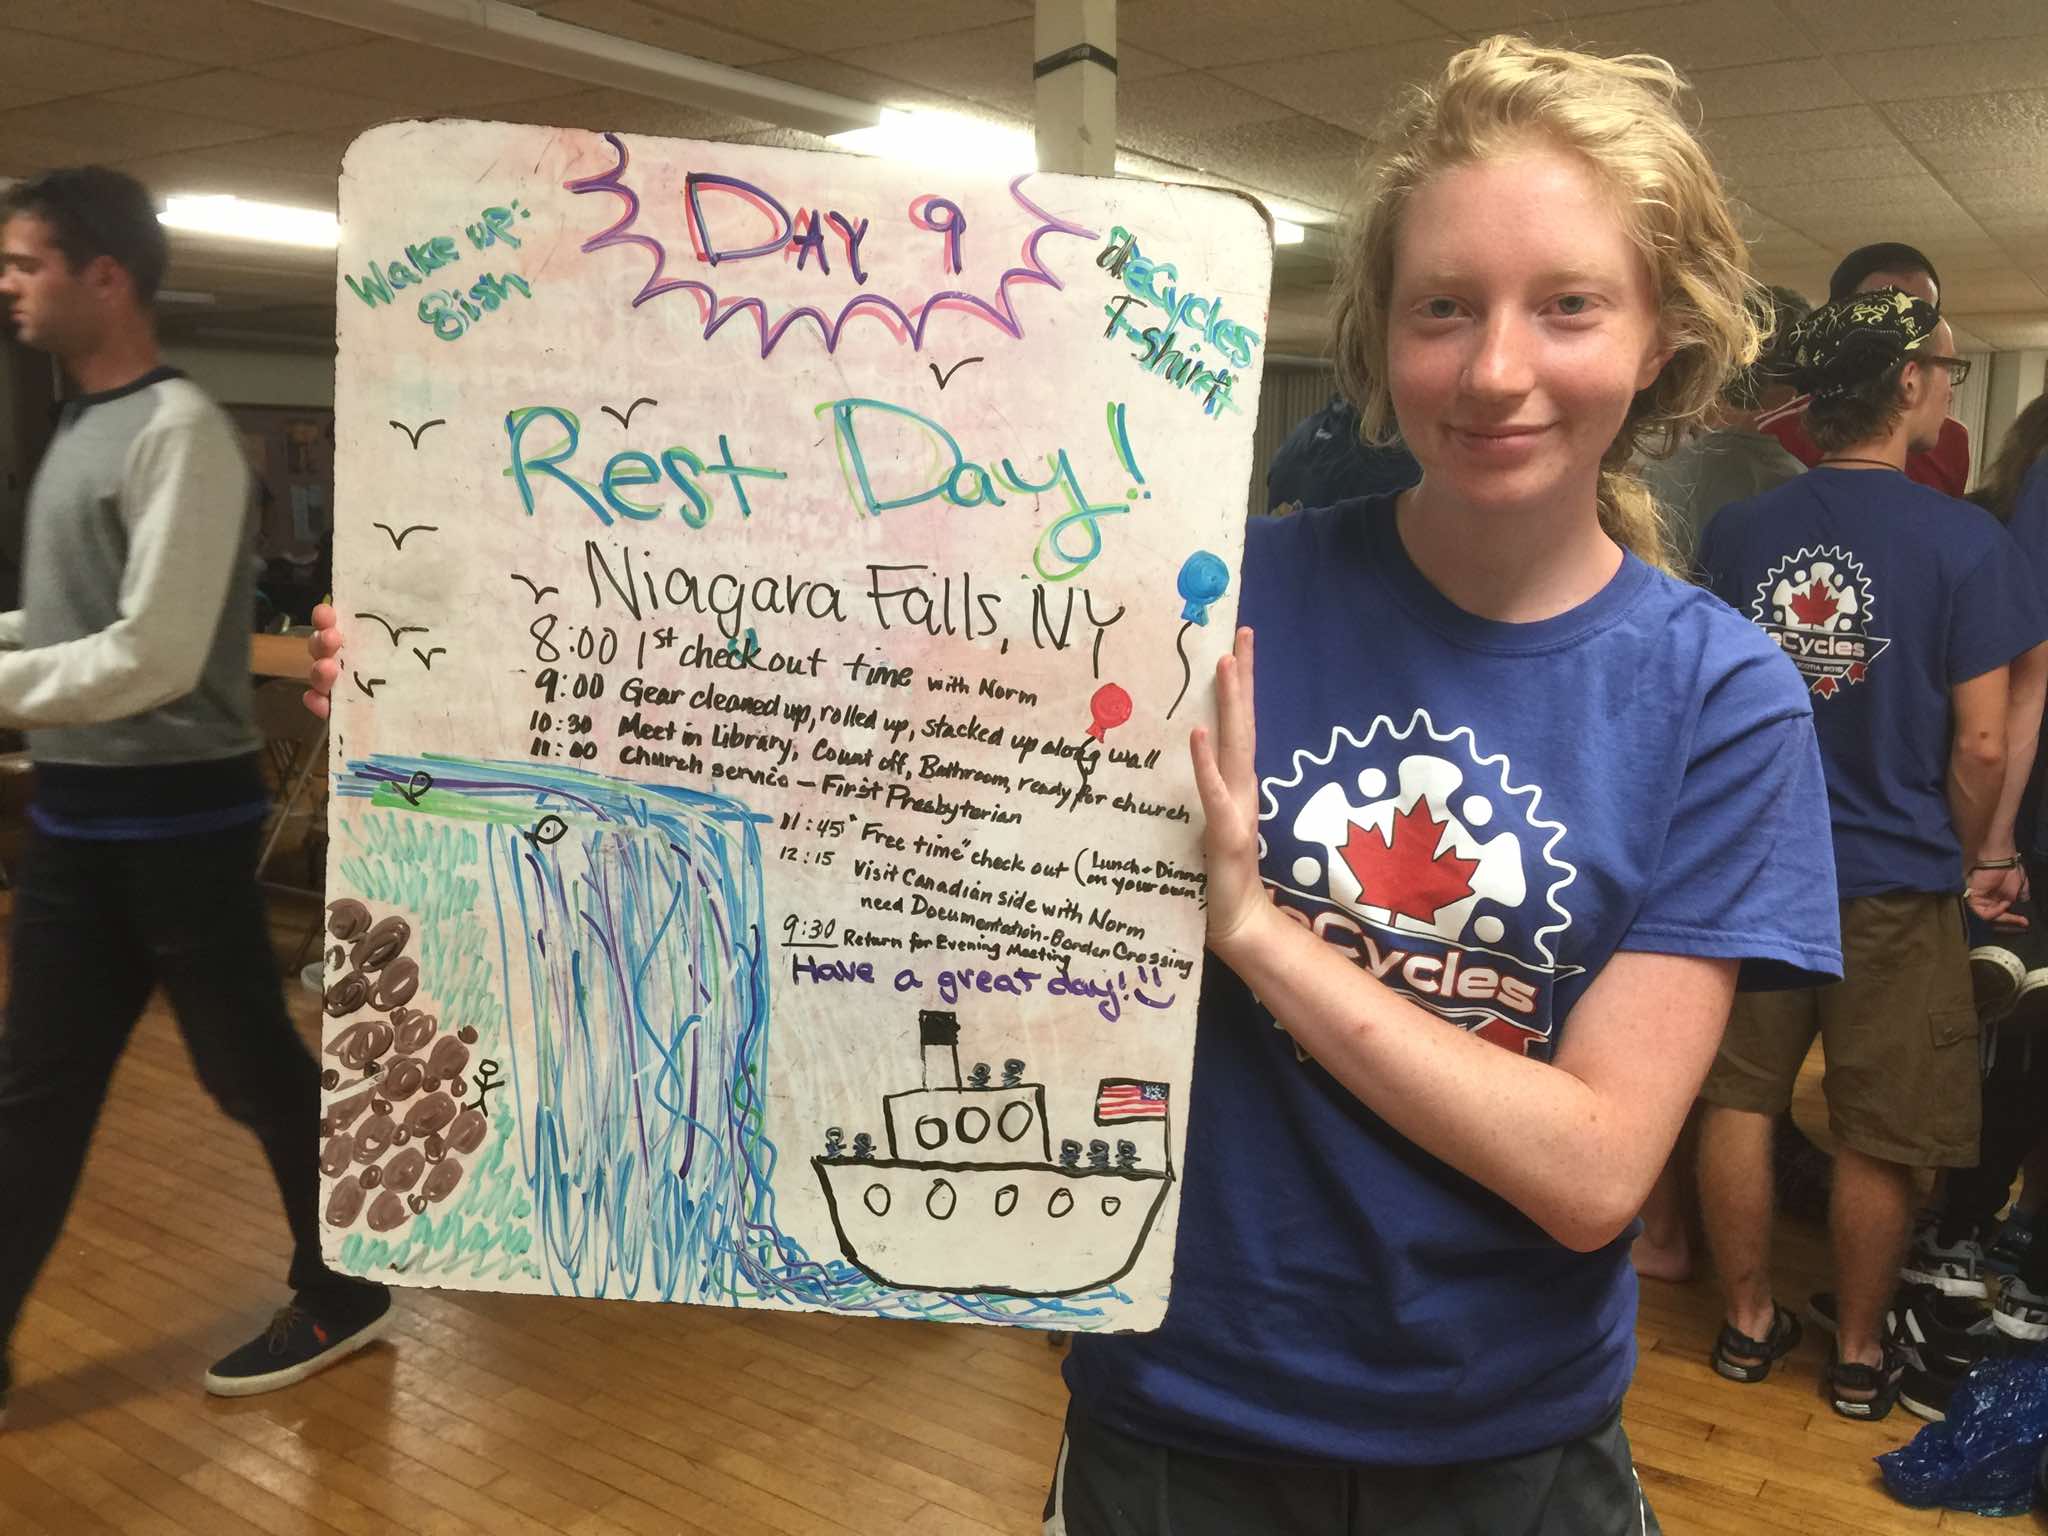 DAY 9
Wake up:
8ish
deCycles
T-shirt
Rest Day!
Niagara Falls, NY
8:00 1st check out time with Norm
9:00 Gear cleaned up, rolled up, stacked up along wall
10:30 Meet in Library, Count off, Bathroom, ready for church
11:00 Church service – First Presbyterian
11:45 "Free time" check out (Lunch + Dinner
on your own!)
12:15 Visit Canadian side with Norm
need Documentation - Border Crossing
9:30 Return for Evening Meeting
Have a great day!!
deCycles
deCycles
SCOTIA 2015